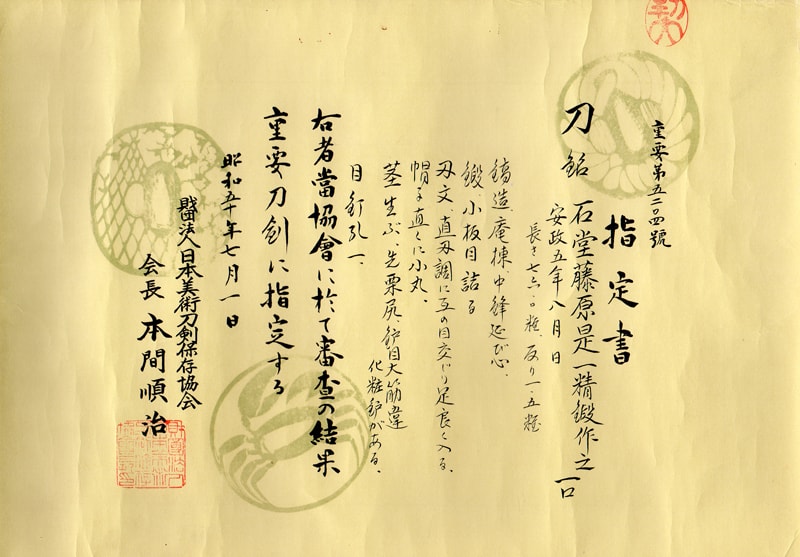 重要第五二四號
指定書
刀 銘 石堂藤原是一精鍛作之 一口
安政五年八月日
長さ七六・〇糎、反り一・五糎
鎬造、庵棟、中鋒延び心、
鍛、小板目詰る
刃文、直刃調に互の目交じり足良く入る、
帽子直ぐに小丸、
茎生ぶ、先栗尻、鑢目大筋違
化粧鑢がある、
目釘孔一、
右者當協會に於て審査の結果
重要刀剣に指定する
昭和五十年七月一日
財団法人日本美術刀剣保存協会
会長 本間順治